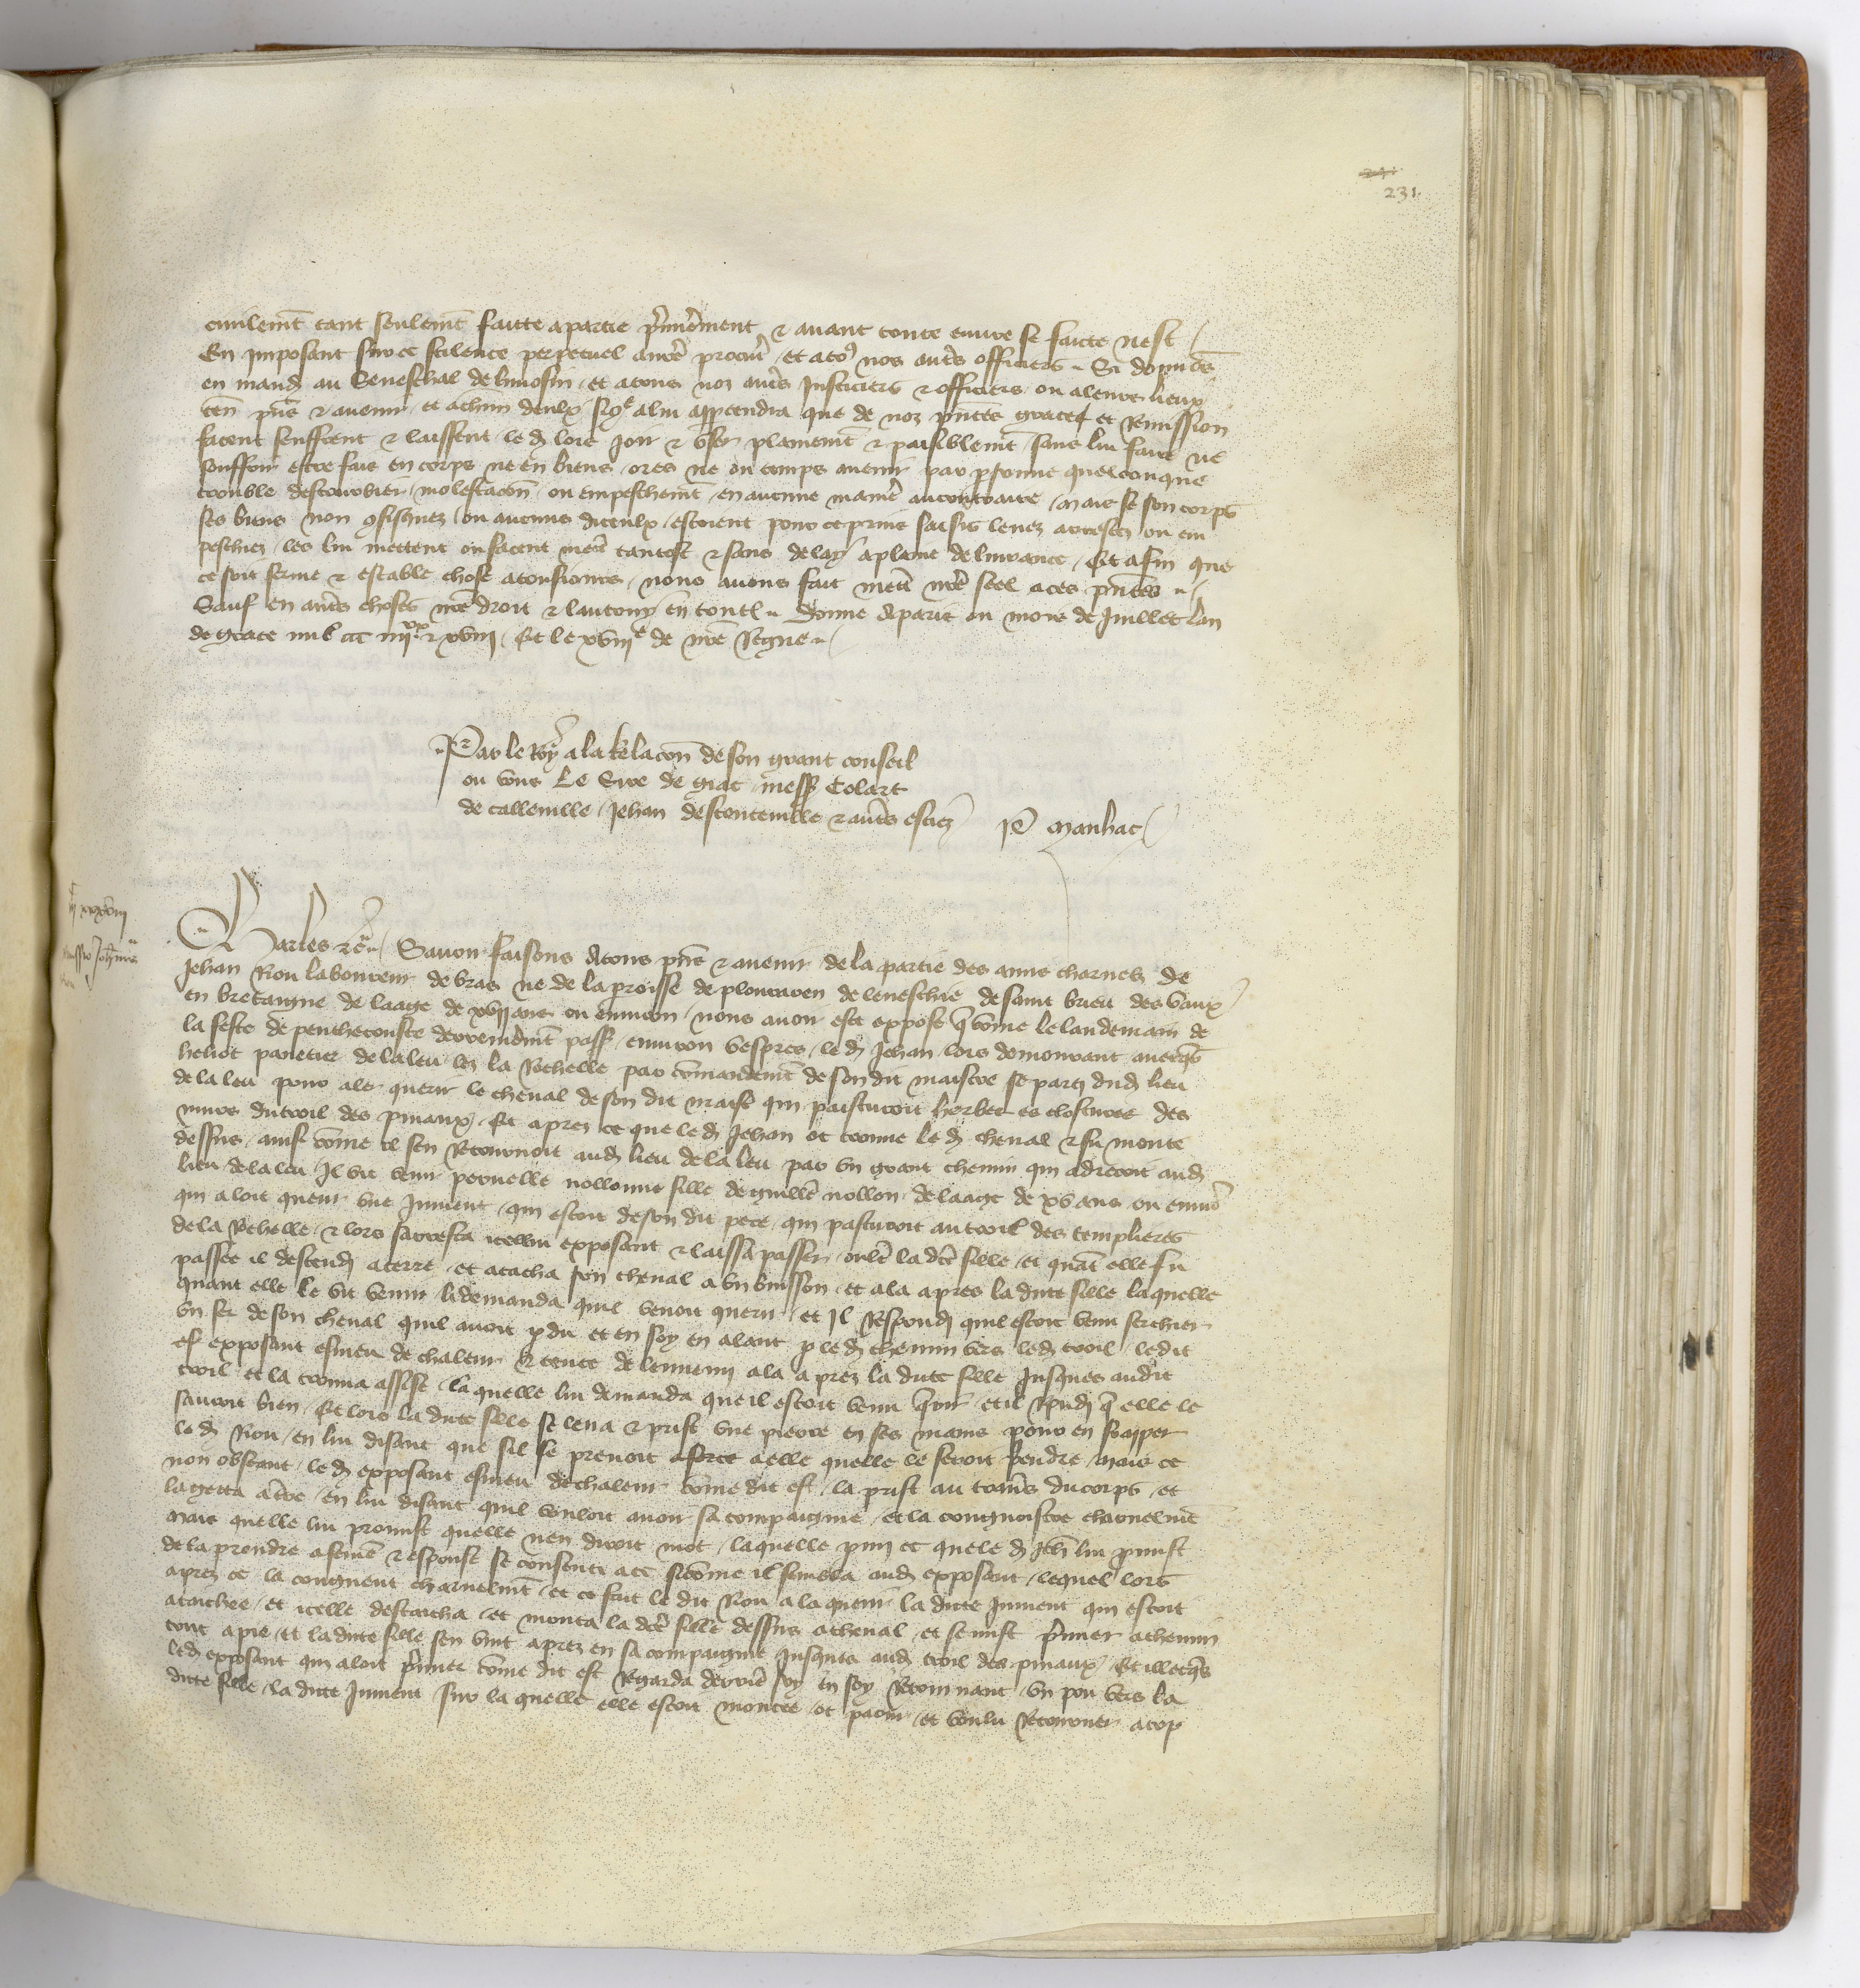 231.
civilemt tant seulemt faitte a partie p̃miẽrement & avant toute euvre se faicte nest /
En imposant sur ce scilence perpetuel a nr̃e procur̃ / et a tos nos autr̃es officiers. Si donnõs
en mand au Seneschal de limosin / et a tous noz autr̃es Justiciers & officiers ou a leurs lieux
ten̄ pñs & avenir / et a chūn deulx / si cõe a lui appartendra que de noz pñtes grace et Remission
facent seuffrent & laissent le d lore joir & user plainemt & paisiblemt / sans lui faire ne
souffrir estre fait en corps ne en biens / ores ne ou temps avenir par psonne quelconque
trouble destourbier / molestacõn / ou empeschemt / en aucune manier̃ au contraire / mais se son corps
ses biens non confisquez / ou aucuns diceulx / estoient pour ce prins saisis levez arrestez ou em
peschiez / les lui mettent ou facent mettr̃ tantost & sans delay a plaine delivrance / Et afin que
ce soit ferme & estable chose a tousjours / nous avons fait mettr̃ nr̃e seel a ces pñtes /
Sauf en autr̃es choses nr̃e droit & lautruy en toutes. Donne a paris ou mois de Juillet lan
de grace mil ccc iiiixx & xviii / Et le xviiie de nr̃e Regne /
Par le Roy a la Relacõn de son grant conseil
ou vous Le Sire de giac / mess Colart
de calleville / Jehan destouteville & autr̃es estiez P Manhac
Charles &c̃ / Savoir faisons A tous pñs & avenir / de la partie des amis charnelz de
Jehan Rou laboureur de bras ne de la proisse de plourhven de leveschie de saint brieu des vaux
en bretaigne de laage de xvii ans ou environ / nous avoir este expose q̃ cõme le landemain de
la feste de penthecouste derreinemt pass / environ vespres / le d Jehan / lors demourant avecq̃s
heliot panetier de laleu lez la Rochelle par cõmandemt de son dit maistre se parti dud lieu
de laleu pour aler querir le cheval de son dit maistr̃ qui paisturoit herbes es clostures des
murs du troil des pinaux / Et apres ce que le d Jehan ot trouve le d cheval & fu monte
dessus / ainsi cõme il sen Retournoit aud lieu de laleu par un grant chemin qui adrecoit aud
lieu de laleu / Il vit venir perrnelle nollonne fille de guillẽ nollon / de laage de xv ans ou enviro
qui aloit querir une Jument / qui estoit de son dit pere / qui pasturoit au troil des templiers
de la Rochelle / & lors sarresta icellui exposant & laissa passer oultr̃ la dicte fille / et quãt elle fu
passee il descendi a terre / et atacha son cheval a un buisson / et ala apres la dicte fille laquelle
quant elle le vit venir li demanda quil venoit querir / et Il Respondi quil estoit venu serchier
un fer de son cheval quil avoit pdu et en soy en alant p le d chemin vers led troil / ledit
exposant esmeu de chaleur & tente de lennemi ala aprez la dicte fille jusques audit
troil / et la trouva assise / laquelle lui demanda que il estoit venu q̃rir / et il Rpndi q̃ elle le
savoit bien / Et lors la dicte fille se leva & prist une pierre en ses mains pour en frapper
le d Rou / en lui disant que sil se prenoit a force a elle quelle le feroit pendre / mais ce
non obstant / le d exposant esmeu de chaleur cõme dit est / la prist au travers du corps / et
la getta a terr̃e / en lui disant quil vouloit avoir sa compaignie / et la congnoistre charnelmt
mais quelle lui promist quelle nen diroit mot / laquelle pmi ce que le d Jeh̃ lui pmist
de la prendre a femẽ & espouse se consenti a ce si cõme il sembla aud exposant / lequel lors
aprez ce la congneut charnelmt / et ce fait le dit Rou ala querir la dicte Jument qui estoit
atachee / et icelle destacha / et monta la dicte fille dessus a cheval / et se mist p̃mier a chemin
tout a pie / et la dicte fille sen vint aprez en sa compaignie jusques aud troil des pinaux / Et illecq̃s
led exposant qui aloit p̃mier cõme dit est Regarda derrier̃ soy / en soy Retournant / un pou vers la
dicte fille / la dicte Jument sur la quelle elle estoit montee / ot paour / et voulu Retourner a cop